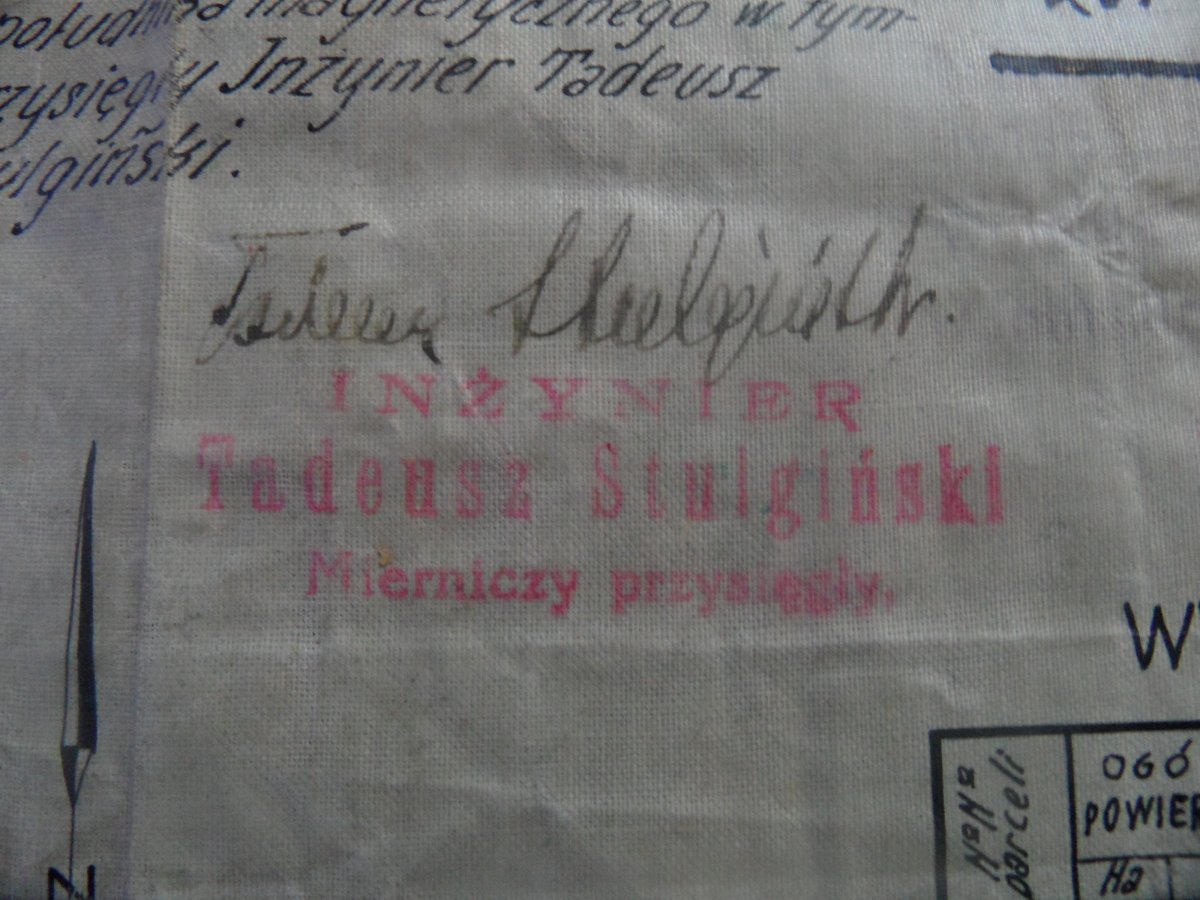 magnetycznego w tym-
rzysięgły Inżynier Tadeusz
ulgiński.
Tadeusz Stulgiński.
INŻYNIER
Tadeusz Stulgiński
Mierniczy przysięgły,
W
N
OGÓ
POWIER
Ha
parceli